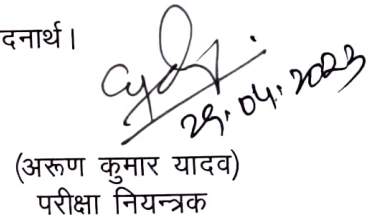 दनार्थ।
29.04.2023
(अरूण कुमार यादव)
परीक्षा नियन्त्रक